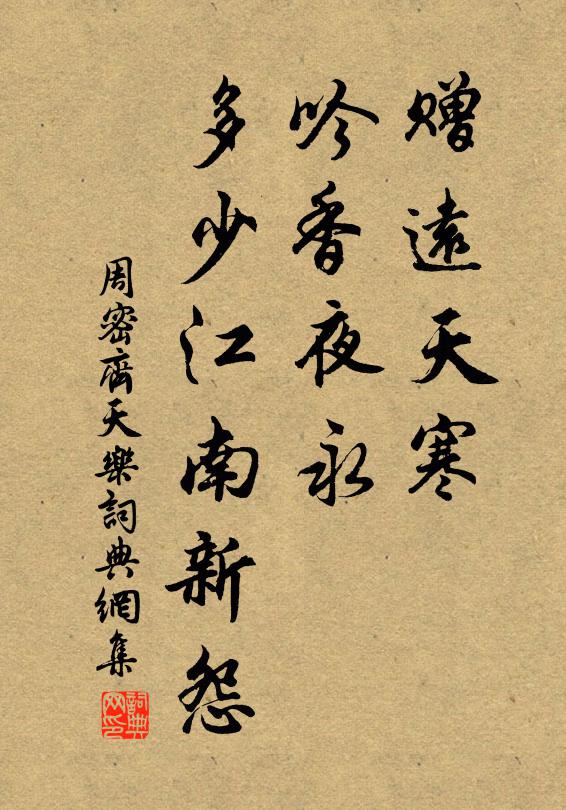 赠遠天寒
吟香夜永
多少江南新怨
周密齊天樂詞典網集
詞典网印